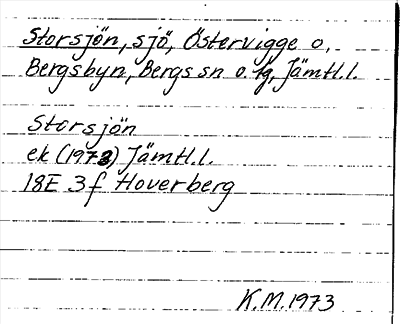 Storsjön, sjö, Östervigge o.
Bergsbyn, Bergs sn o. tg, Jämtl.l.
Storsjön
ek (1973) Jämtl.l.
18E 3f Hoverberg
K.M.1973